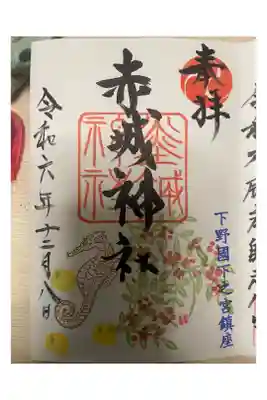 奉拝
下野國下之宮鎮座
赤城神社
赤城
神社
令和六年十二月八日